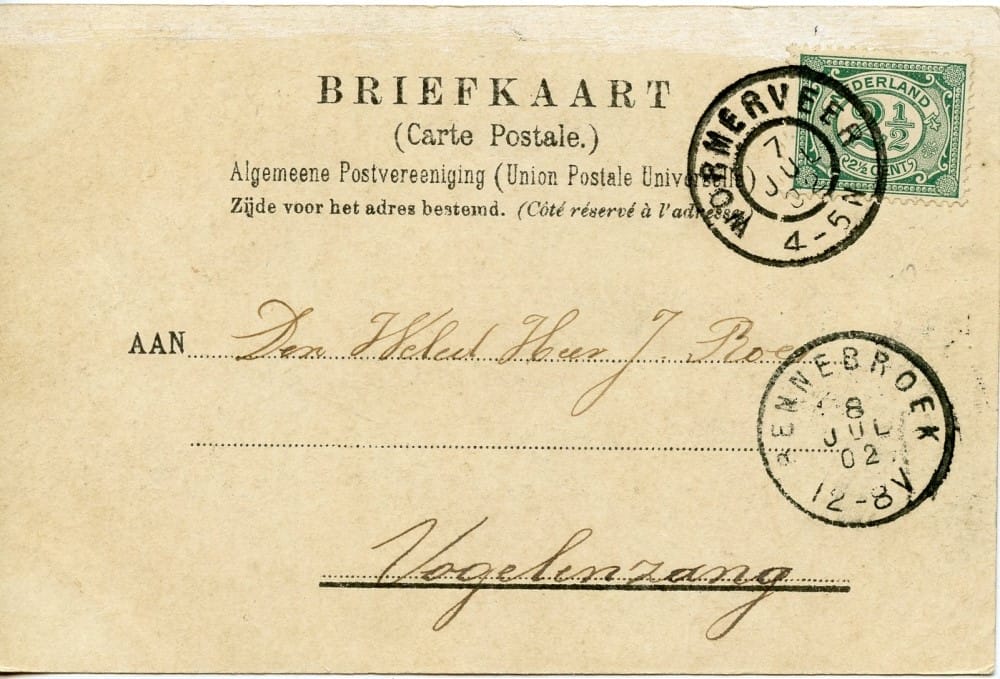 BRIEFKAART
(Carte Postale.)
Algemeene Postvereeniging (Union Postale Universelle)
Zijde voor het adres bestemd. (Côté réservé à l'adresse)
NEDERLAND
2½
2½ CENT
WORMERVEER
7
JUL
4-5N
AAN Den Weled Heer J.
BENNEBROEK
8
JUL
02
12-8V
Vogelenzang